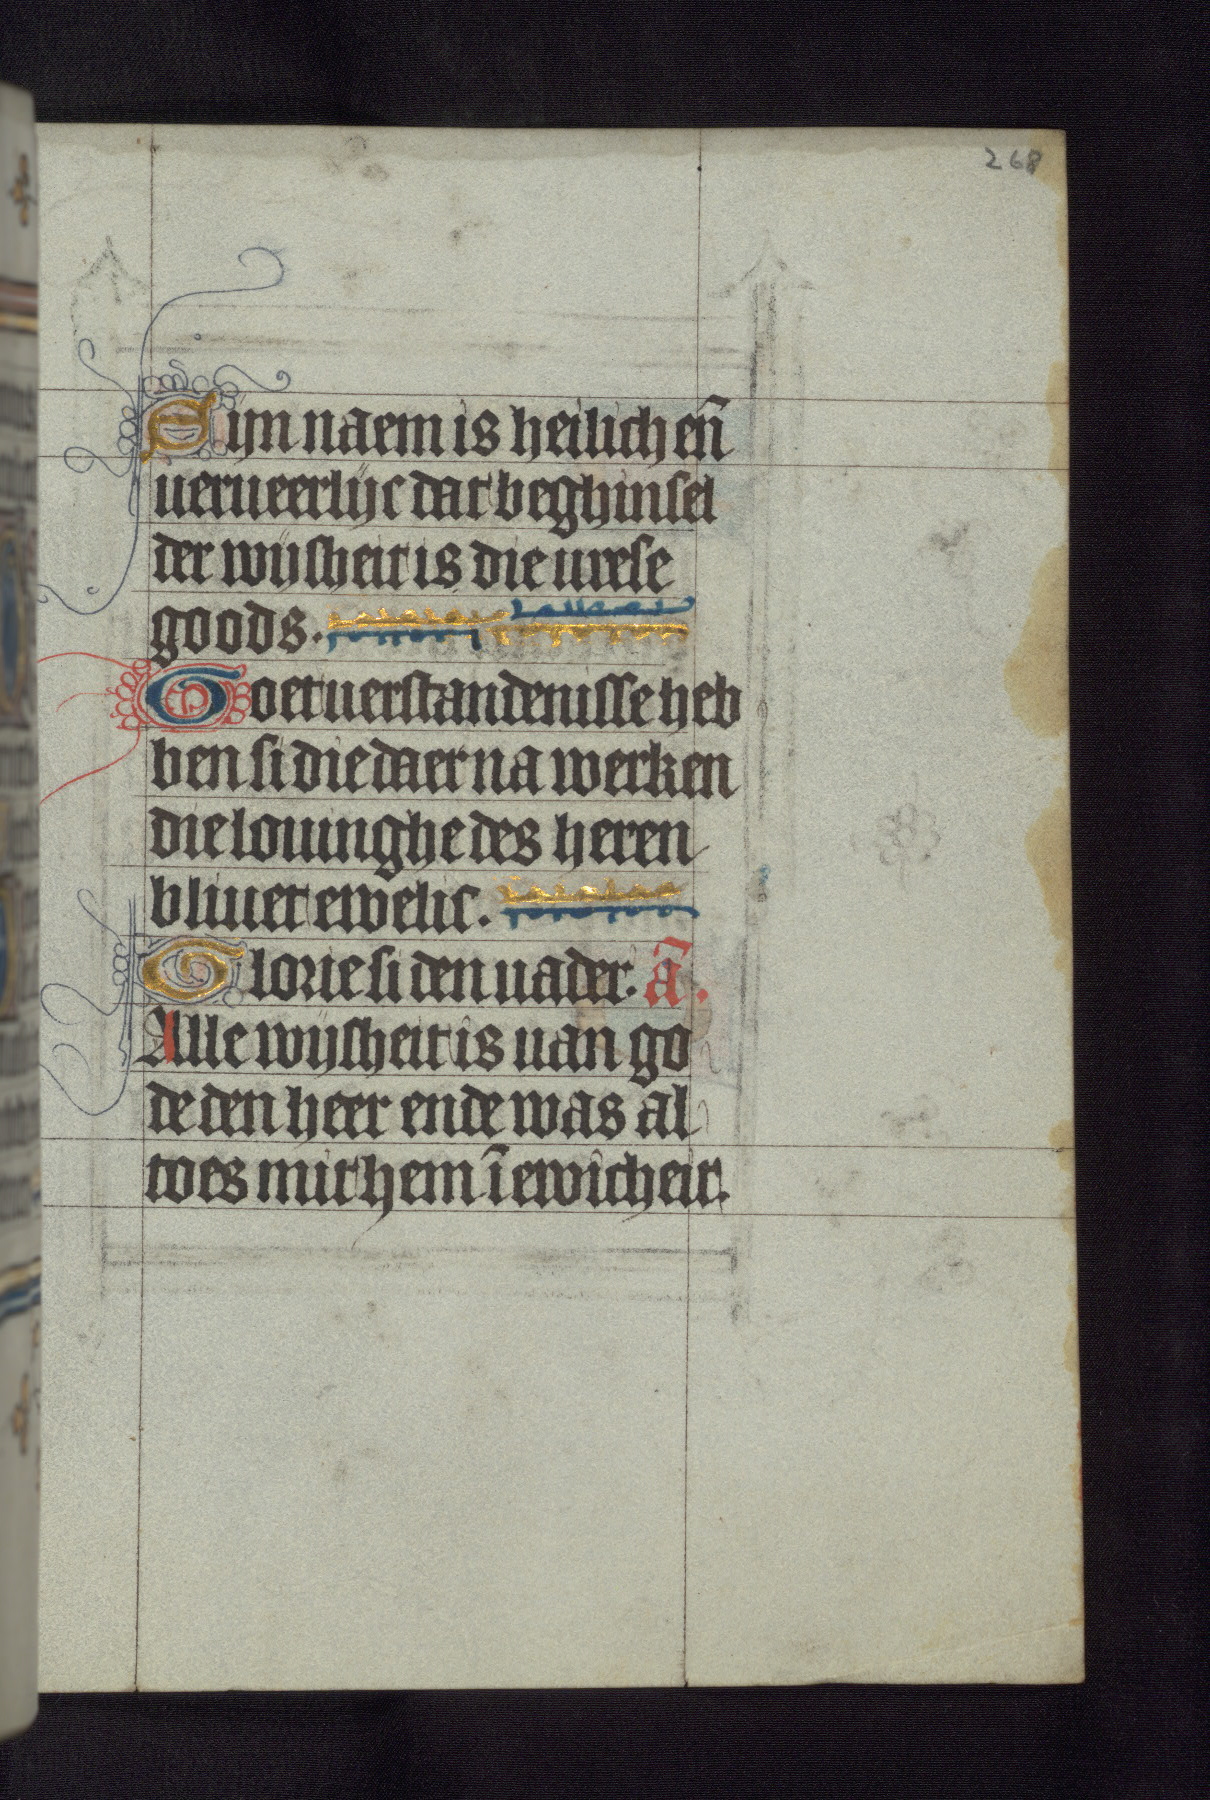 268
Sijn naem is heilich en̄
uerueerlijc dat beghinsel
der wijsheit is die urese
goods.
Goet uerstandenisse heb
ben si die daer na werken
die louinghe des heren
bliuet ewelic.
Glorie si den uader. ā.
Alle wijsheit is uan go
de den heer ende was al
toes mit hem ī ewicheit.